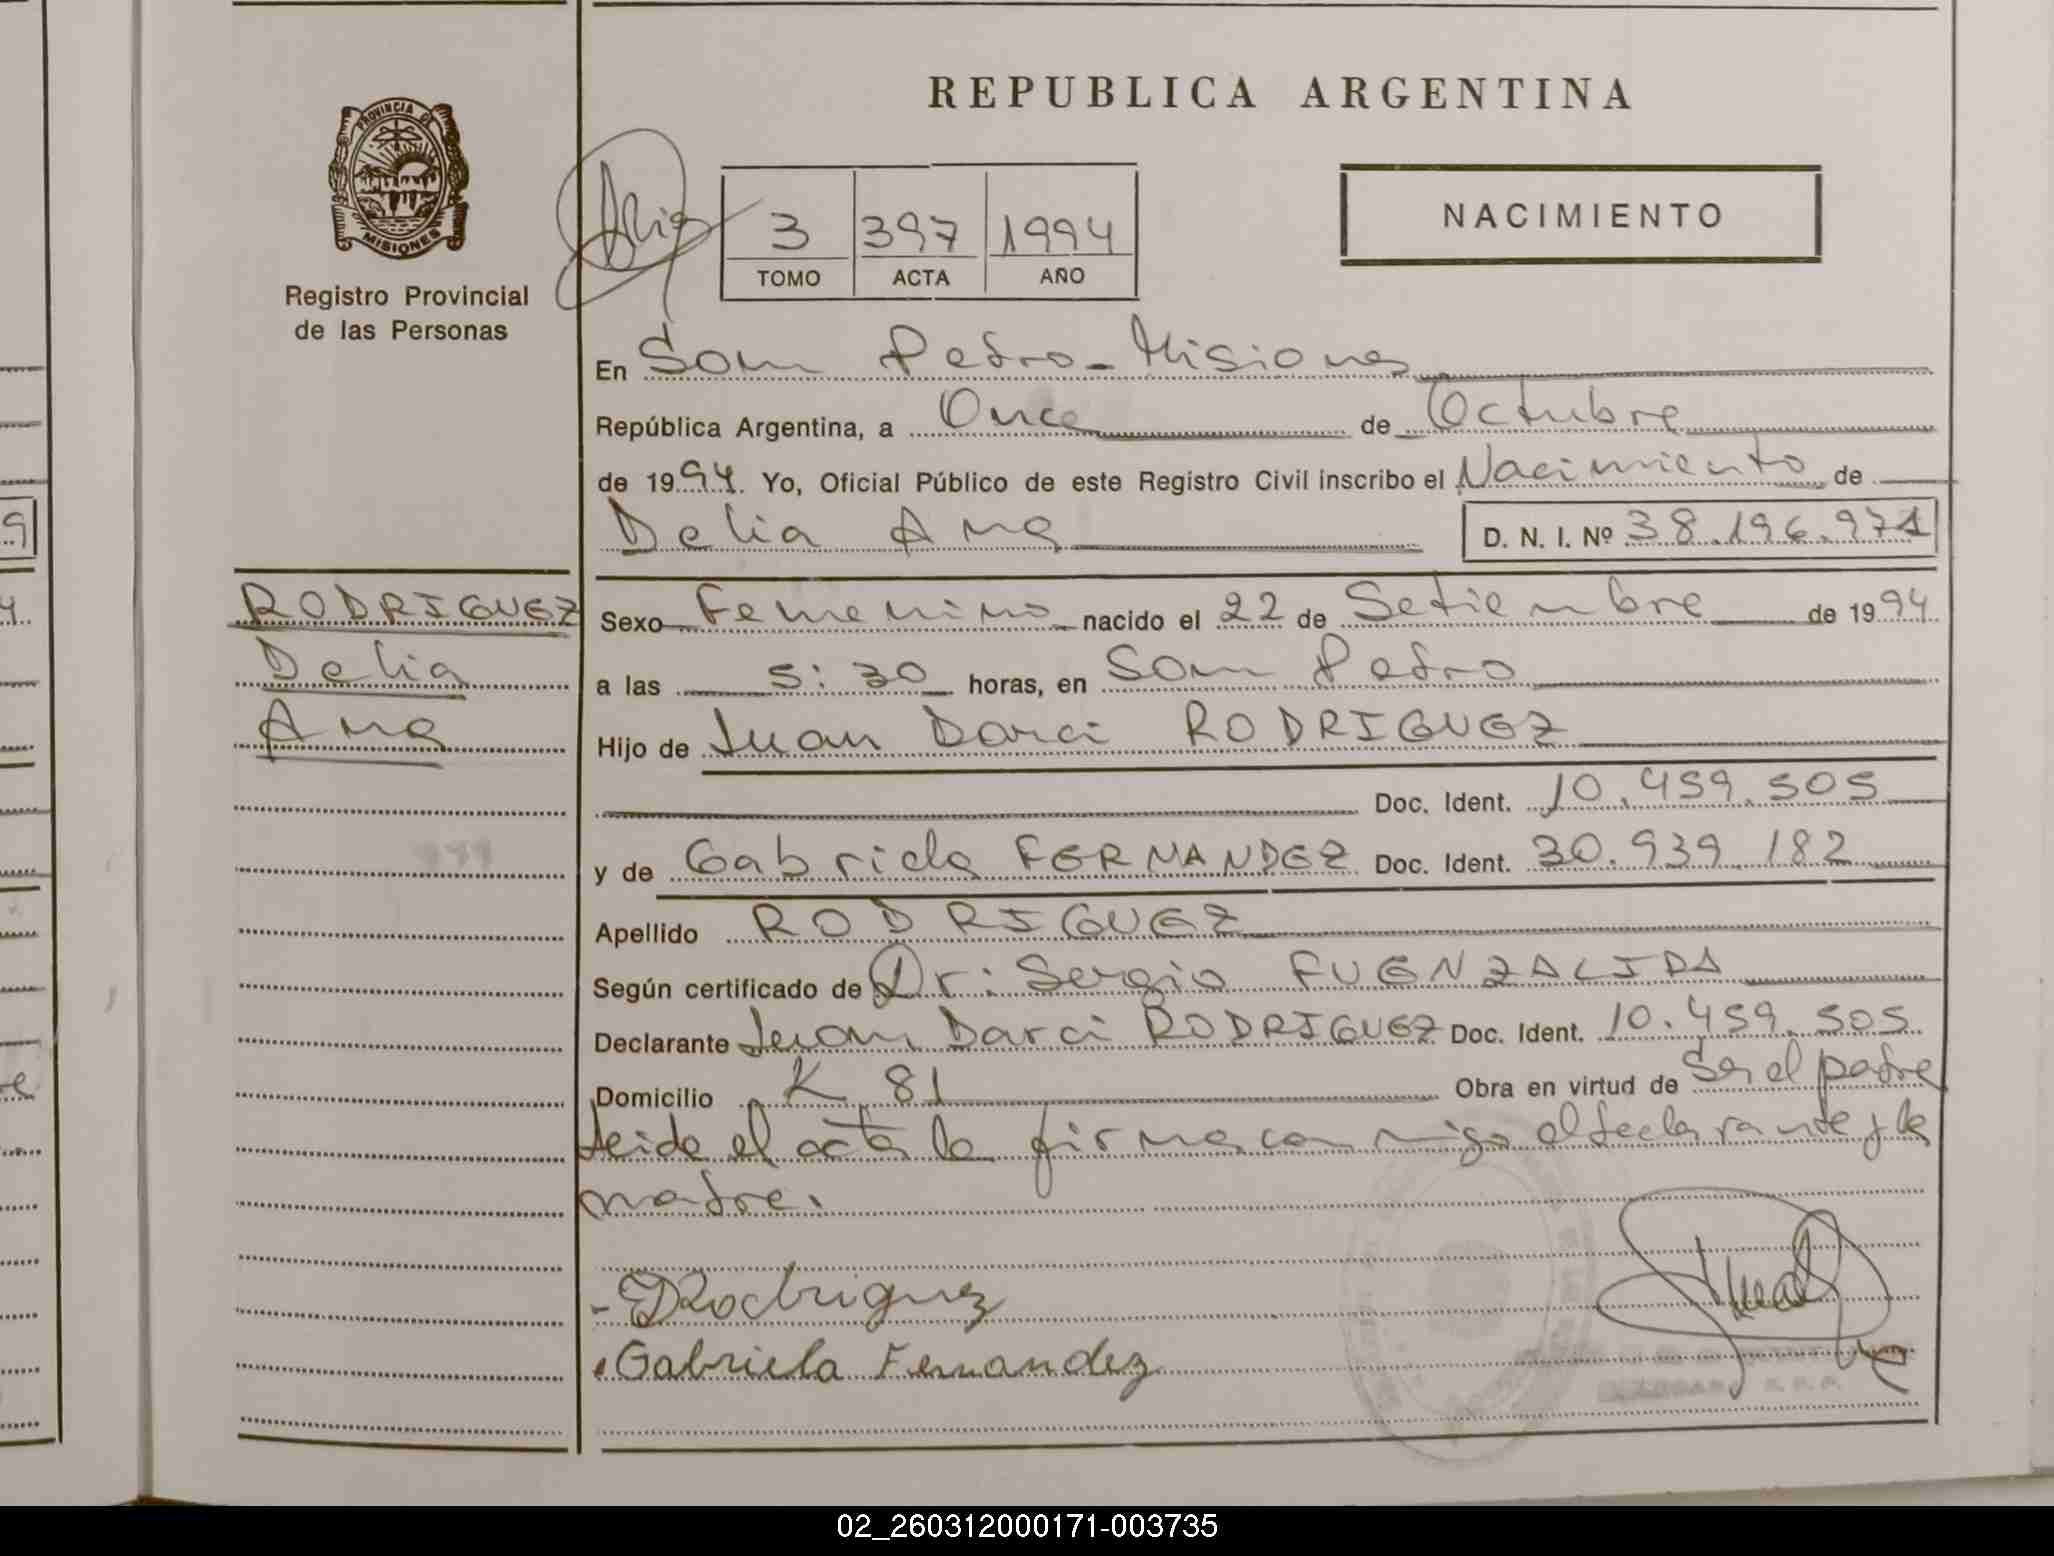 REPUBLICA ARGENTINA
PROVINCIA DE
MISIONES
Registro Provincial
de las Personas
3 397 1994
TOMO ACTA AÑO
NACIMIENTO
En San Pedro - Misiones
República Argentina, a Once de Octubre
de 1994. Yo, Oficial Público de este Registro Civil inscribo el Nacimiento de
Delia Ana D. N. I. Nº 38.196.971
RODRIGUEZ
Delia
Ana
Sexo Femenino nacido el 22 de Setiembre de 1994
a las 5:30 horas, en San Pedro
Hijo de Juan Darci RODRIGUEZ
Doc. Ident. 10.459.505
y de Gabriela FERNANDEZ Doc. Ident. 30.939.182
Apellido RODRIGUEZ
Según certificado de Dr: Sergio FUENZALIDA
Declarante Juan Darci RODRIGUEZ Doc. Ident. 10.459.505
Domicilio K 81 Obra en virtud de Ser el padre
Leida el acta la firma conmigo el declarante y la
madre.
Rodriguez
Gabriela Fernandez
02_260312000171-003735